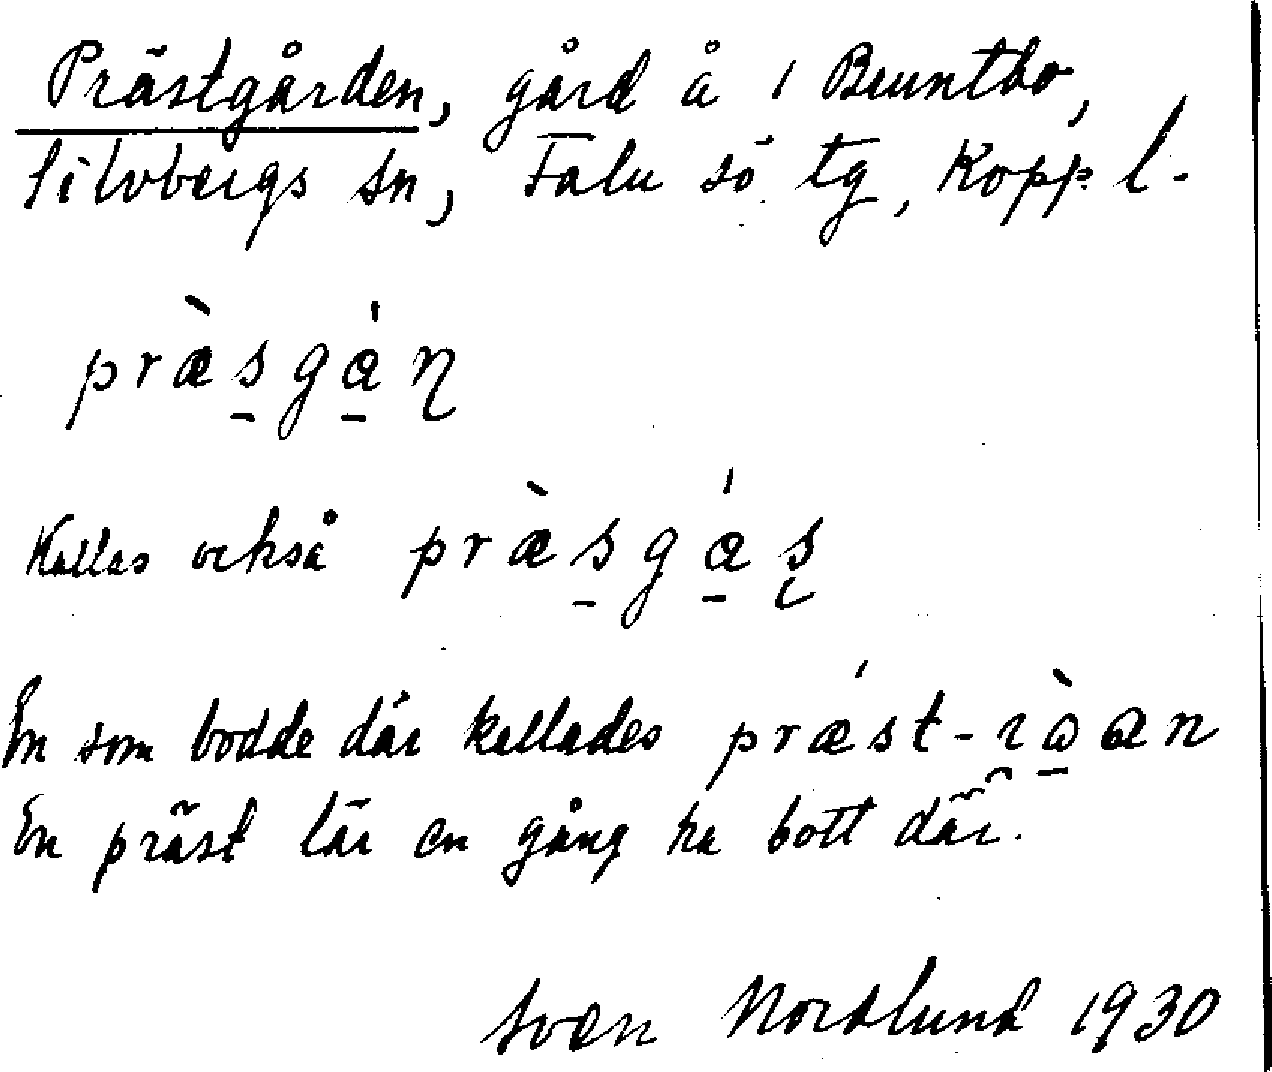 Prästgården, gård å 1 Bruntbo,
Silvbergs sn, Falu sö. tg, Kopp. l.
præ̀s̠ga̠̍ɳ
Kallas också præ̀s̠ga̠̍ʂ
En som bodde där kallades præ̍st-
En präst lär en gång ha bott där.
Sven Nordlund 1930